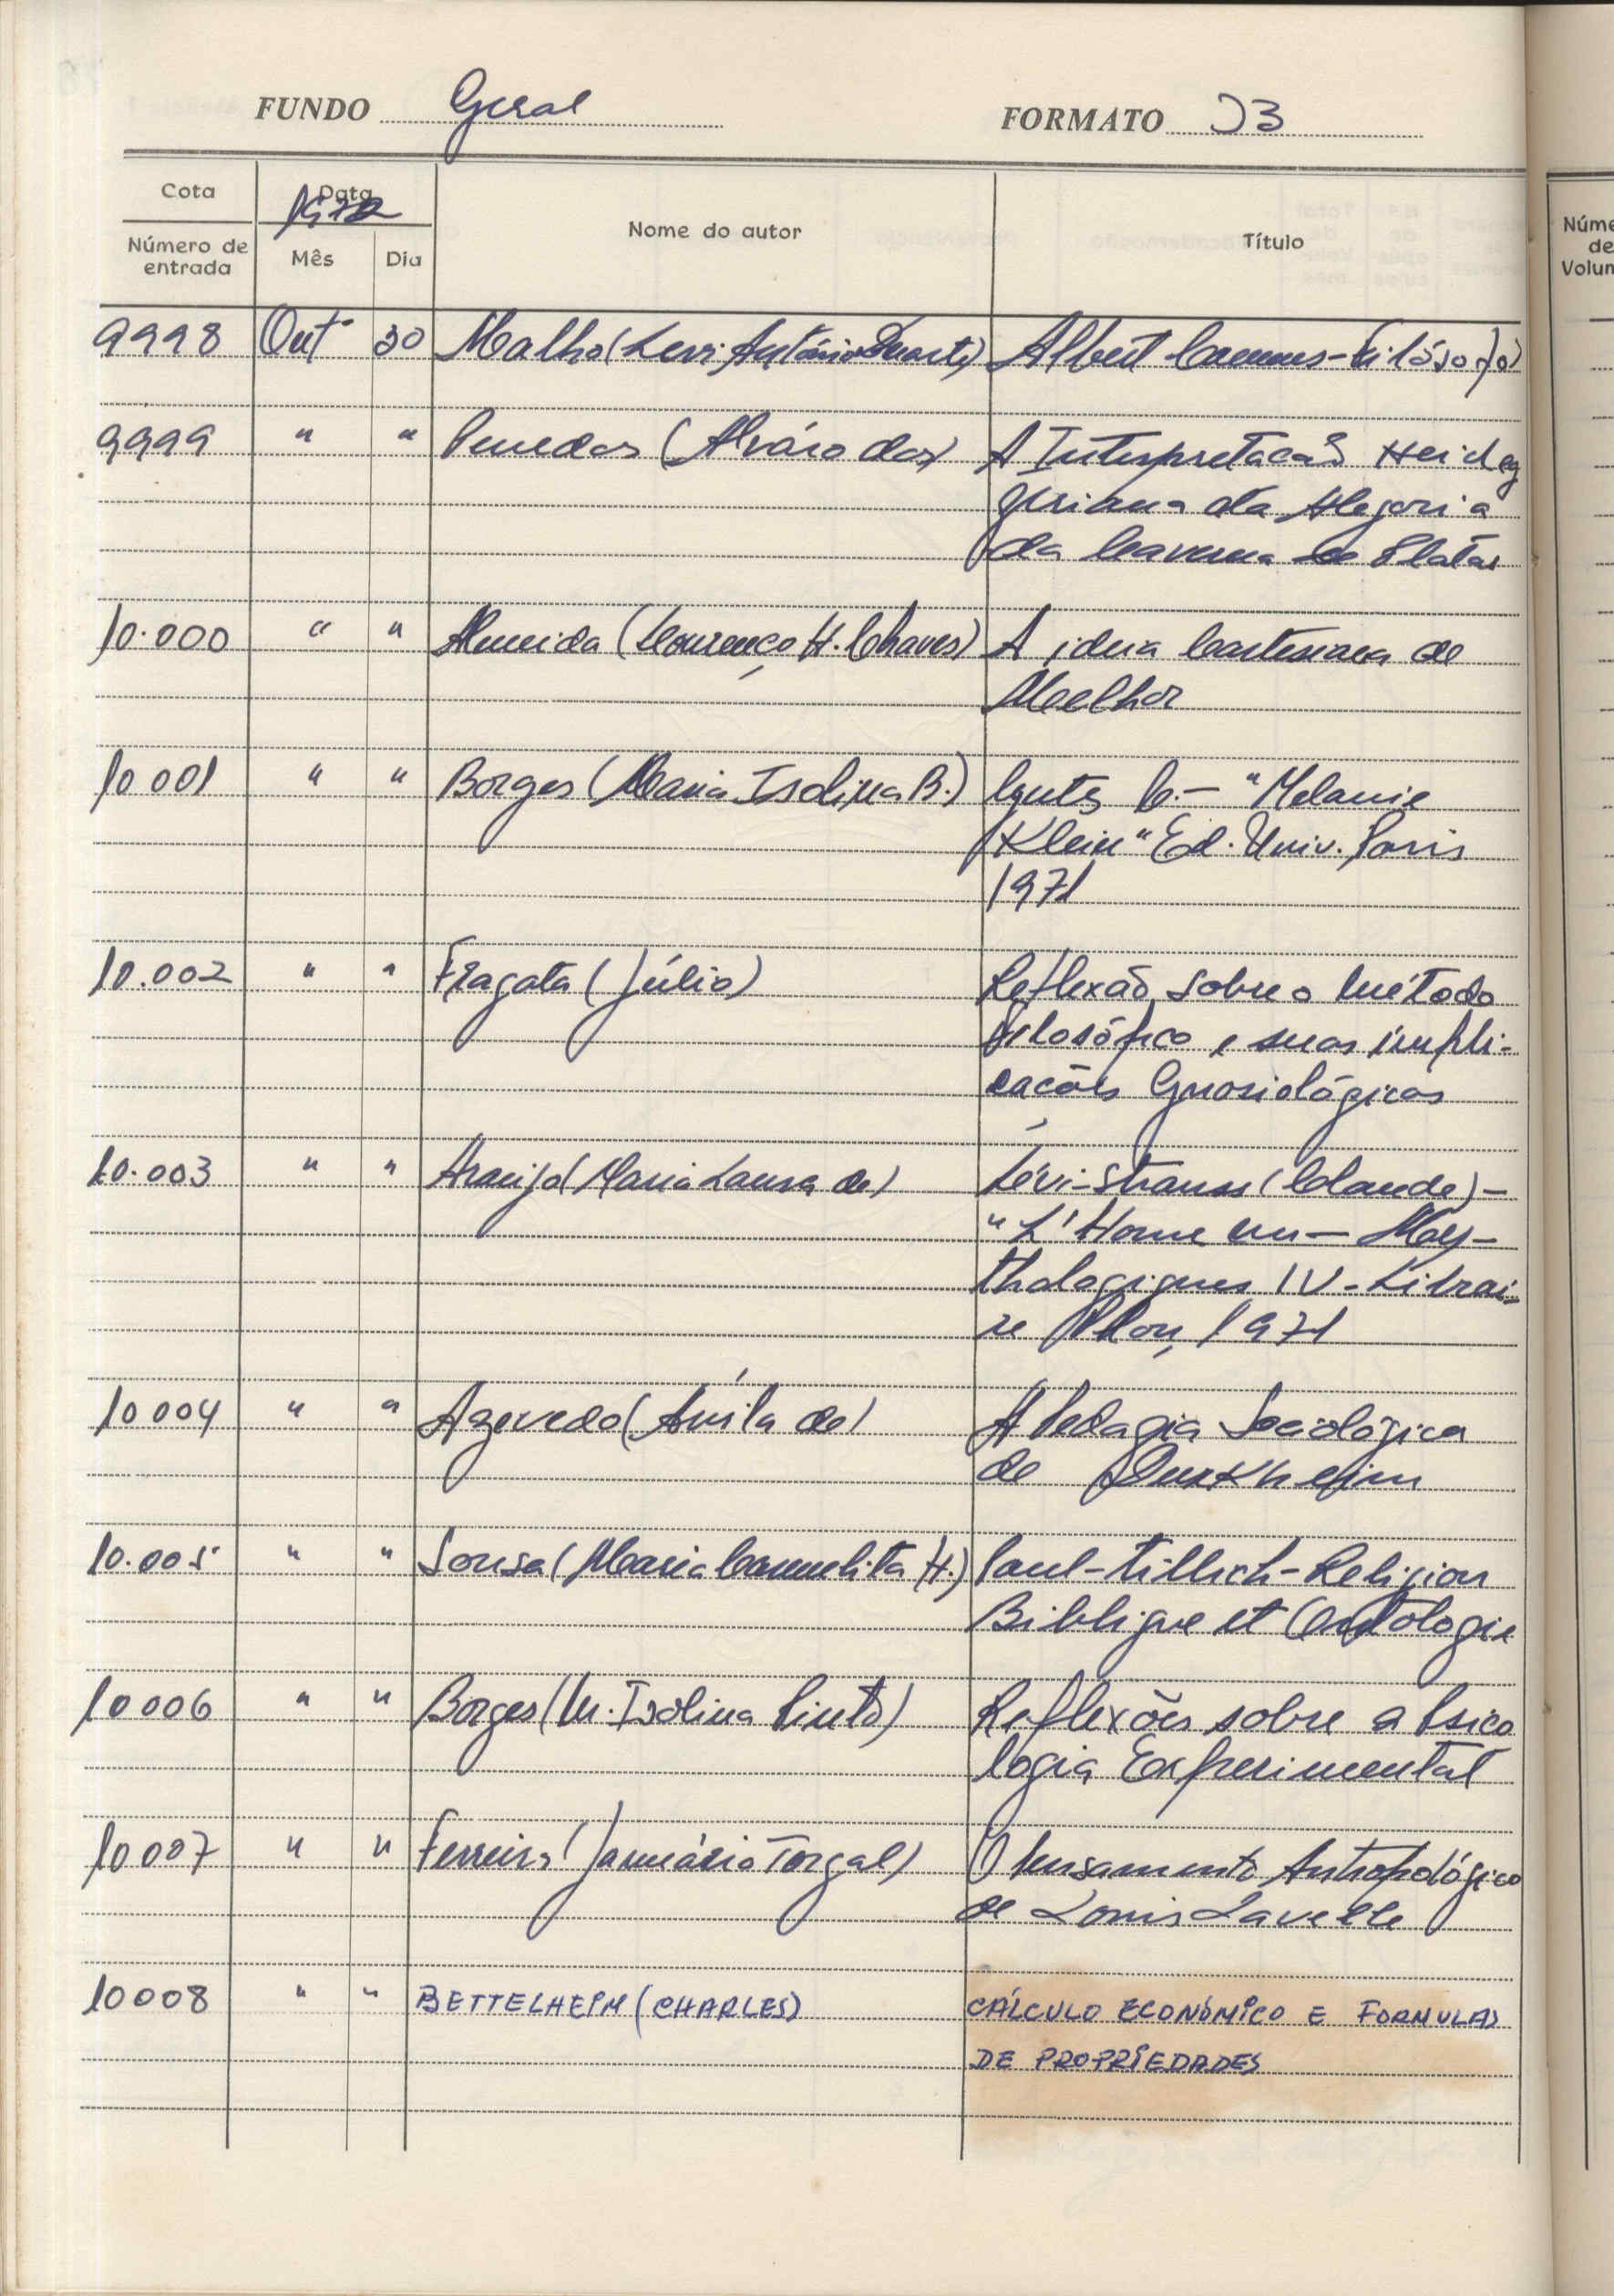 FUNDO Geral FORMATO J3
Cota Data Nome do autor Título
1972
Número de entrada Mês Dia
Núme
de
Volum
9998 Out. 30 Malho (Levi António Duarte) Albert Camus - Filósofo
9999 " " Penedos (Álvaro dos) A Interpretação Heideg
geriana da Alegoria
da Caverna de Platão
10.000 " " Almeida (Lourenço H. Chaves) A ideia Cartesiana de
Melhor
10 001 " " Borges (Maria Isolina B.) C. - "Melanie
Klein" Ed. Univ. Paris
1971
10.002 " " Fragata (Júlio) Reflexão sobre o método
filosófico e suas impli-
cações Gnosiológicas
10.003 " " Araujo (Maria Laura de) Lévi-Strauss (Claude) -
"L'Home nu - My-
thologiques IV - Librai-
re Plon, 1971
10 004 " " Azevedo (Ávila de) A Pedagia Sociológica
de Durkheim
10.005 " " Sousa (Maria Carmelita H.) Paul-Tillich - Religion
Biblique et Ontologie
10 006 " " Borges (M. Isolina Pinto) Reflexões sobre a Psico
logia Experimental
10 007 " " Ferreira (Januário Torgal) O Pensamento Antropológico
de Louis Lavelle
10008 " " BETTELHEIM (CHARLES) CÁLCULO ECONÓMICO E FORMULAS
DE PROPRIEDADES